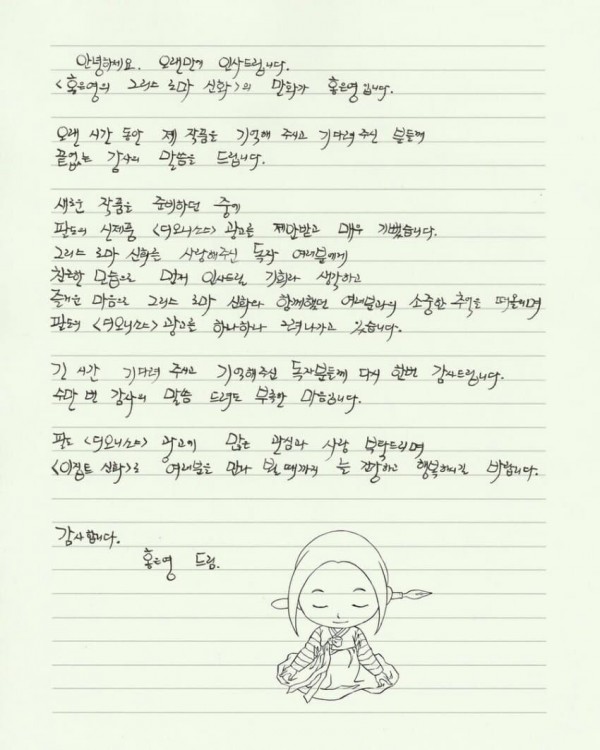 안녕하세요. 오랜만에 인사드립니다.
<홍은영의 그리스 로마 신화>의 만화가 홍은영입니다.
오랜 시간 동안 제 작품을 기억해 주시고 기다려 주신 분들께
끝없는 감사의 말씀을 드립니다.
새로운 작품을 준비하던 중에
팔도의 신제품 <더오니소드> 광고를 제안받고 매우 기뻤습니다.
그리스 로마 신화를 사랑해주신 독자 여러분에게
친근한 모습으로 먼저 인사드릴 기회라 생각하고
즐거운 마음으로 그리스 로마 신화와 함께했던 여러분과의 소중한 추억을 떠올리며
팔도의 <더오니소드> 광고를 하나하나 그려나가고 있습니다.
긴 시간 기다려 주시고 기억해주신 독자분들께 다시 한번 감사드립니다.
수만 번 감사의 말씀 드려도 부족한 마음입니다.
팔도 <더오니소드> 광고에 많은 관심과 사랑 부탁드리며
<이집트 신화>로 여러분을 만나 뵐 때까지 늘 건강하고 행복하시길 바랍니다.
감사합니다.
홍은영 드림.